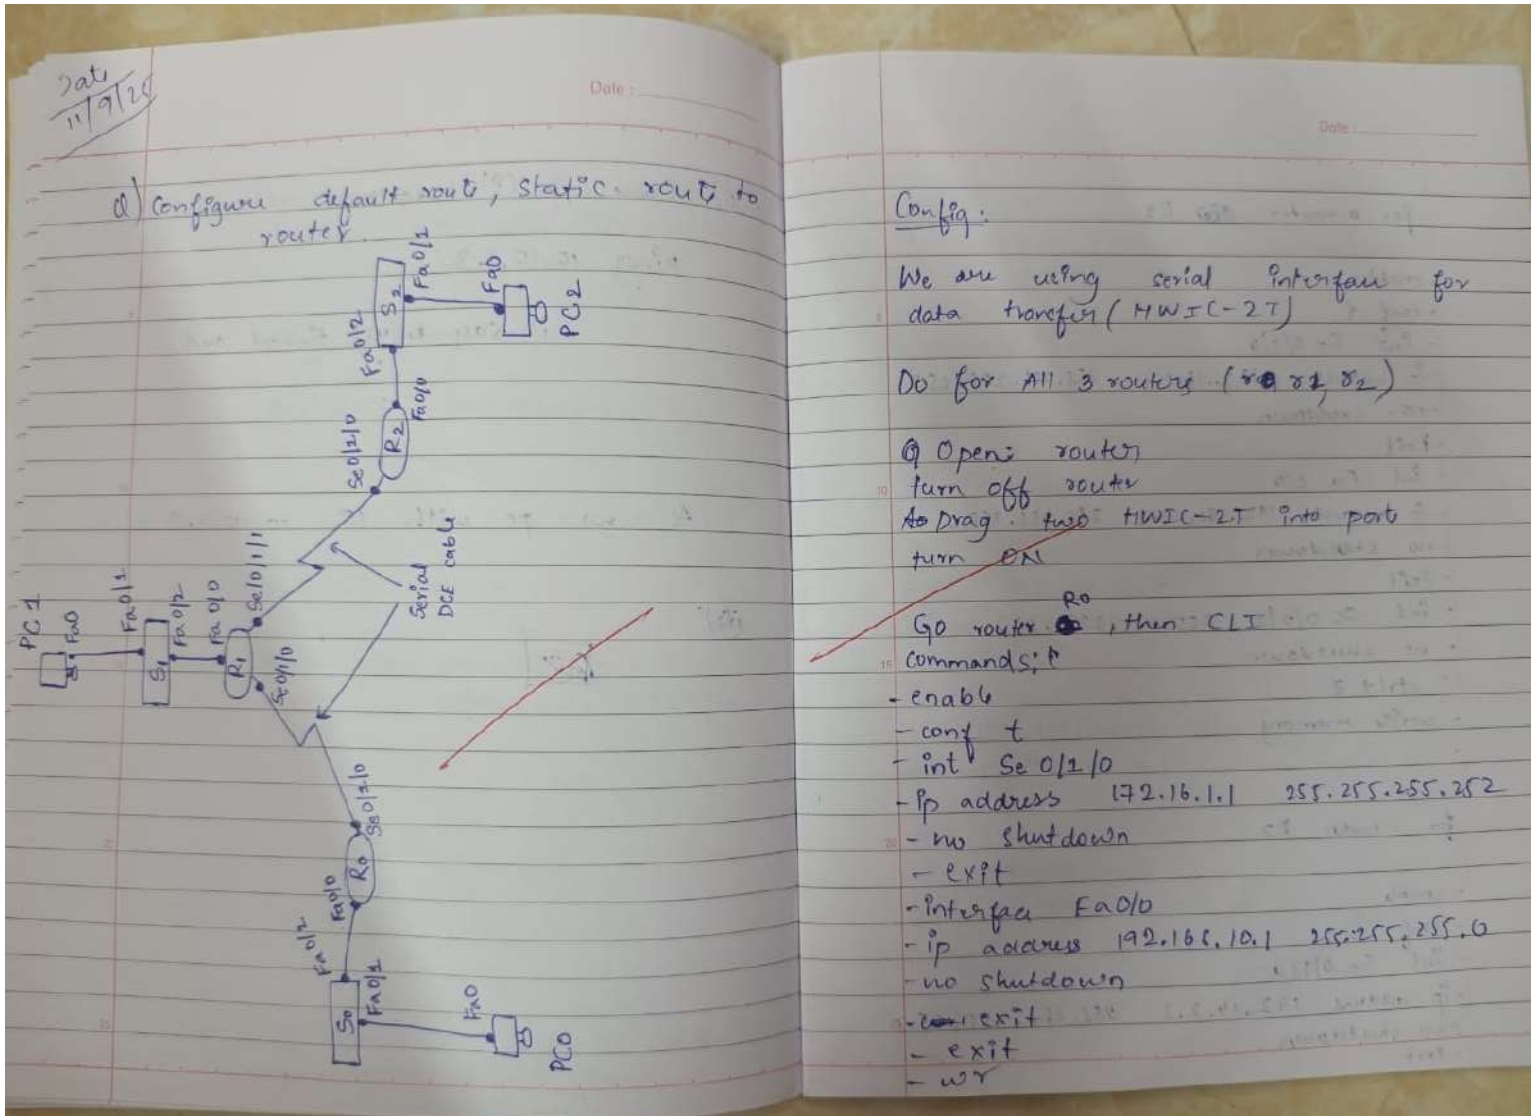 Date
11/9/25
Date :
Q) Configure default route, static route to
router.
PC1
Fa0
Fa0/1
S1
Fa0/2
Fa0/0
R1
Se0/1/0
Se0/1/1
Serial
DCE cable
Se0/1/0
R2
Fa0/0
Fa0/2
S2
Fa0/1
Fa0
PC2
Se0/1/0
R0
Fa0/0
Fa0/2
S0
Fa0/1
Fa0
PC0
Date :
Config:
We are using serial interface for
data transfer (HWIC-2T)
Do for All 3 routers (r0 r1, r2)
Open router
turn off router
Drag two HWIC-2T into port
turn ON
Go router R0, then CLI
commands:
- enable
- conf t
- int Se 0/1/0
- ip address 172.16.1.1 255.255.255.252
- no shutdown
- exit
- interface Fa0/0
- ip address 192.168.10.1 255.255.255.0
- no shutdown
- exit
- exit
- wr